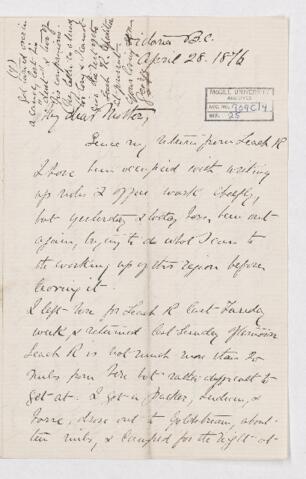 Victoria B.C.
April 28. 1876
McGILL UNIVERSITY
ARCHIVES
ACC. NO. 709C/4
REF. 25
My dear Mother,
Since my return from Leach R
I have been occupied with writing
up notes & office work chiefly,
but yesterday & today have been out
again, trying to do what I can to
the working up of this region before
leaving it.
I left here for Leach R last Tuesday
week, & returned last Sunday afternoon
Leach R is not much more than 20
miles from here but rather difficult to
get at. I got a Packer, Indian, &
horse, drove out to Goldstream, about
ten miles, & camped for the night at